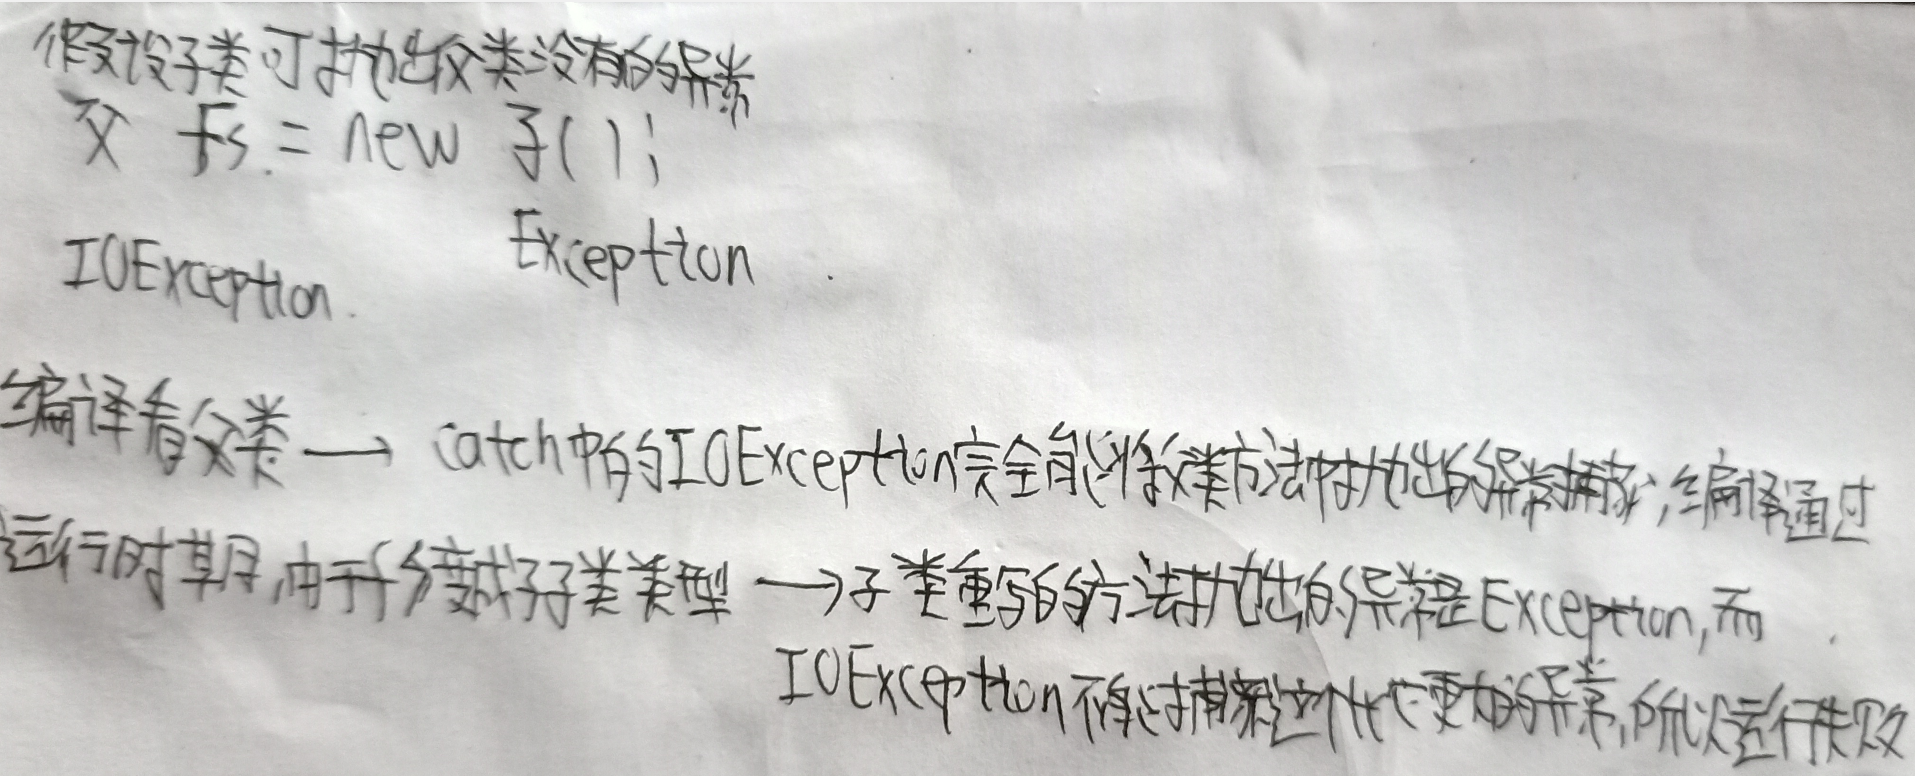 假设子类可抛出父类没有的异常
父 fs = new 子();
IOException.
Exception
编译看父类 → catch中的IOException完全能将父类方法中抛出的异常捕获,编译通过
运行时期,由于fs变成了子类类型 → 子类重写的方法抛出的异常是Exception,而
IOException不能捕获这个比它更大的异常,所以运行失败